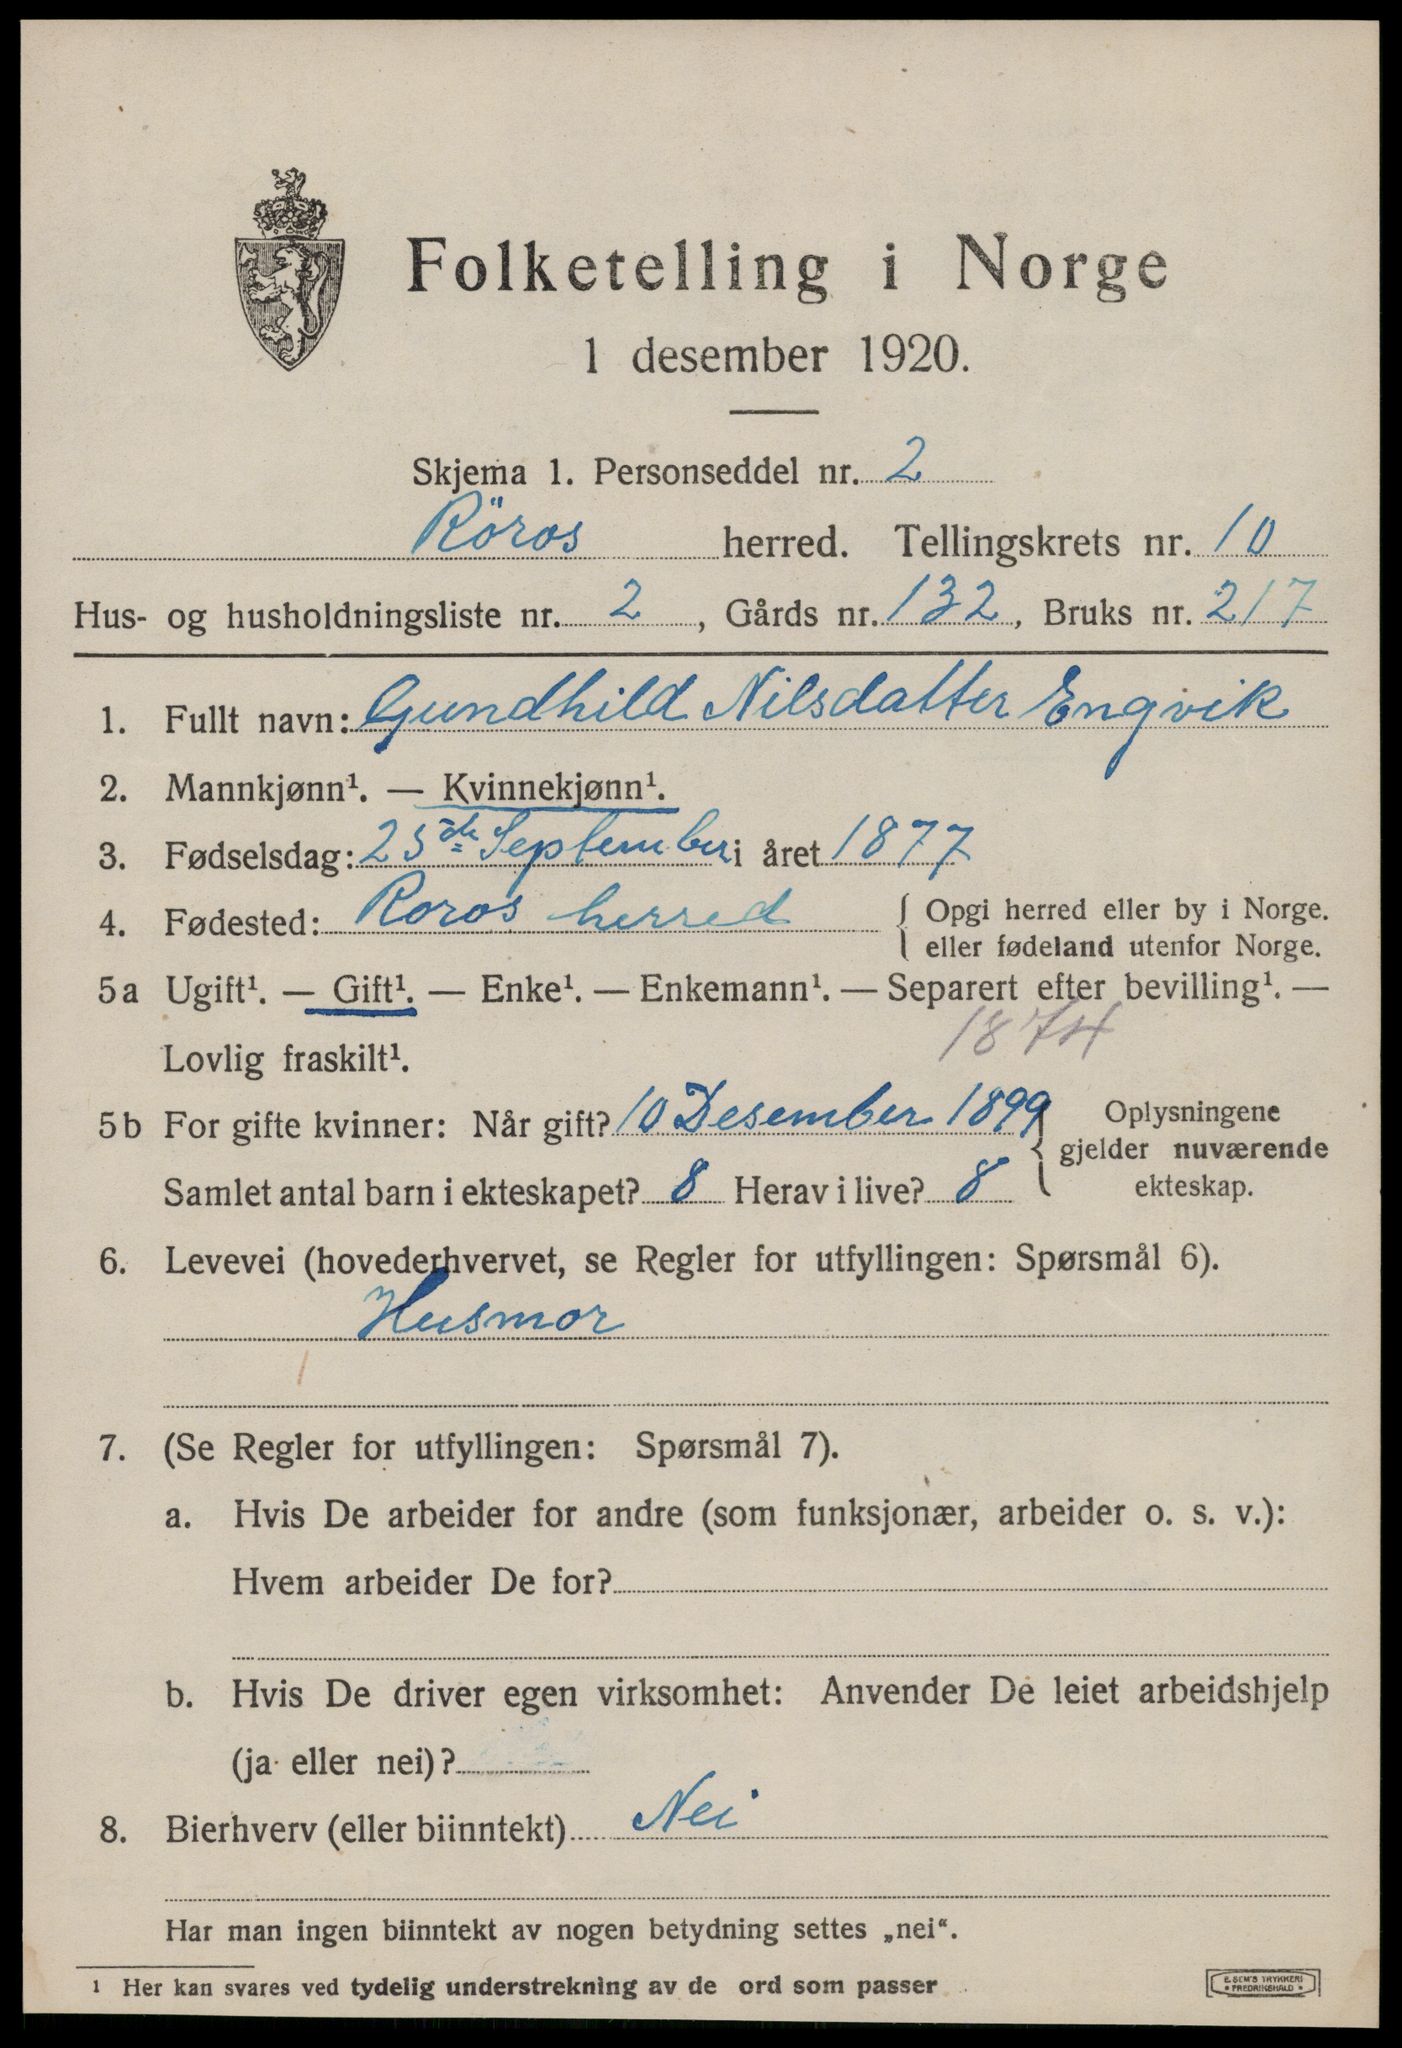 Folketelling i Norge
1 desember 1920.
Skjema 1. Personseddel nr. 2
Röros herred. Tellingskrets nr. 10
Hus- og husholdningsliste nr. 2, Gårds nr. 132, Bruks nr. 217
1. Fullt navn: Gundhild Nilsdatter Engvik
2. Mannkjønn¹. — Kvinnekjønn¹.
3. Fødselsdag: 25de September i året 1877
4. Fødested: Roros herred { Opgi herred eller by i Norge.
eller fødeland utenfor Norge.
5a Ugift¹. — Gift¹. — Enke¹. — Enkemann¹. — Separert efter bevilling¹. —
1874
Lovlig fraskilt¹.
5b For gifte kvinner: Når gift? 10 Desember 1899
Samlet antal barn i ekteskapet? 8 Herav i live? 8
Oplysningene
gjelder nuværende
ekteskap.
6. Levevei (hovederhvervet, se Regler for utfyllingen: Spørsmål 6).
Husmor
7. (Se Regler for utfyllingen: Spørsmål 7).
a. Hvis De arbeider for andre (som funksjonær, arbeider o. s. v.):
Hvem arbeider De for?
b. Hvis De driver egen virksomhet: Anvender De leiet arbeidshjelp
(ja eller nei)?
8. Bierhverv (eller biinntekt) Nei
Har man ingen biinntekt av nogen betydning settes „nei“.
¹ Her kan svares ved tydelig understrekning av de ord som passer
E. SEM'S TRYKKERI
• FREDRIKSHALD •